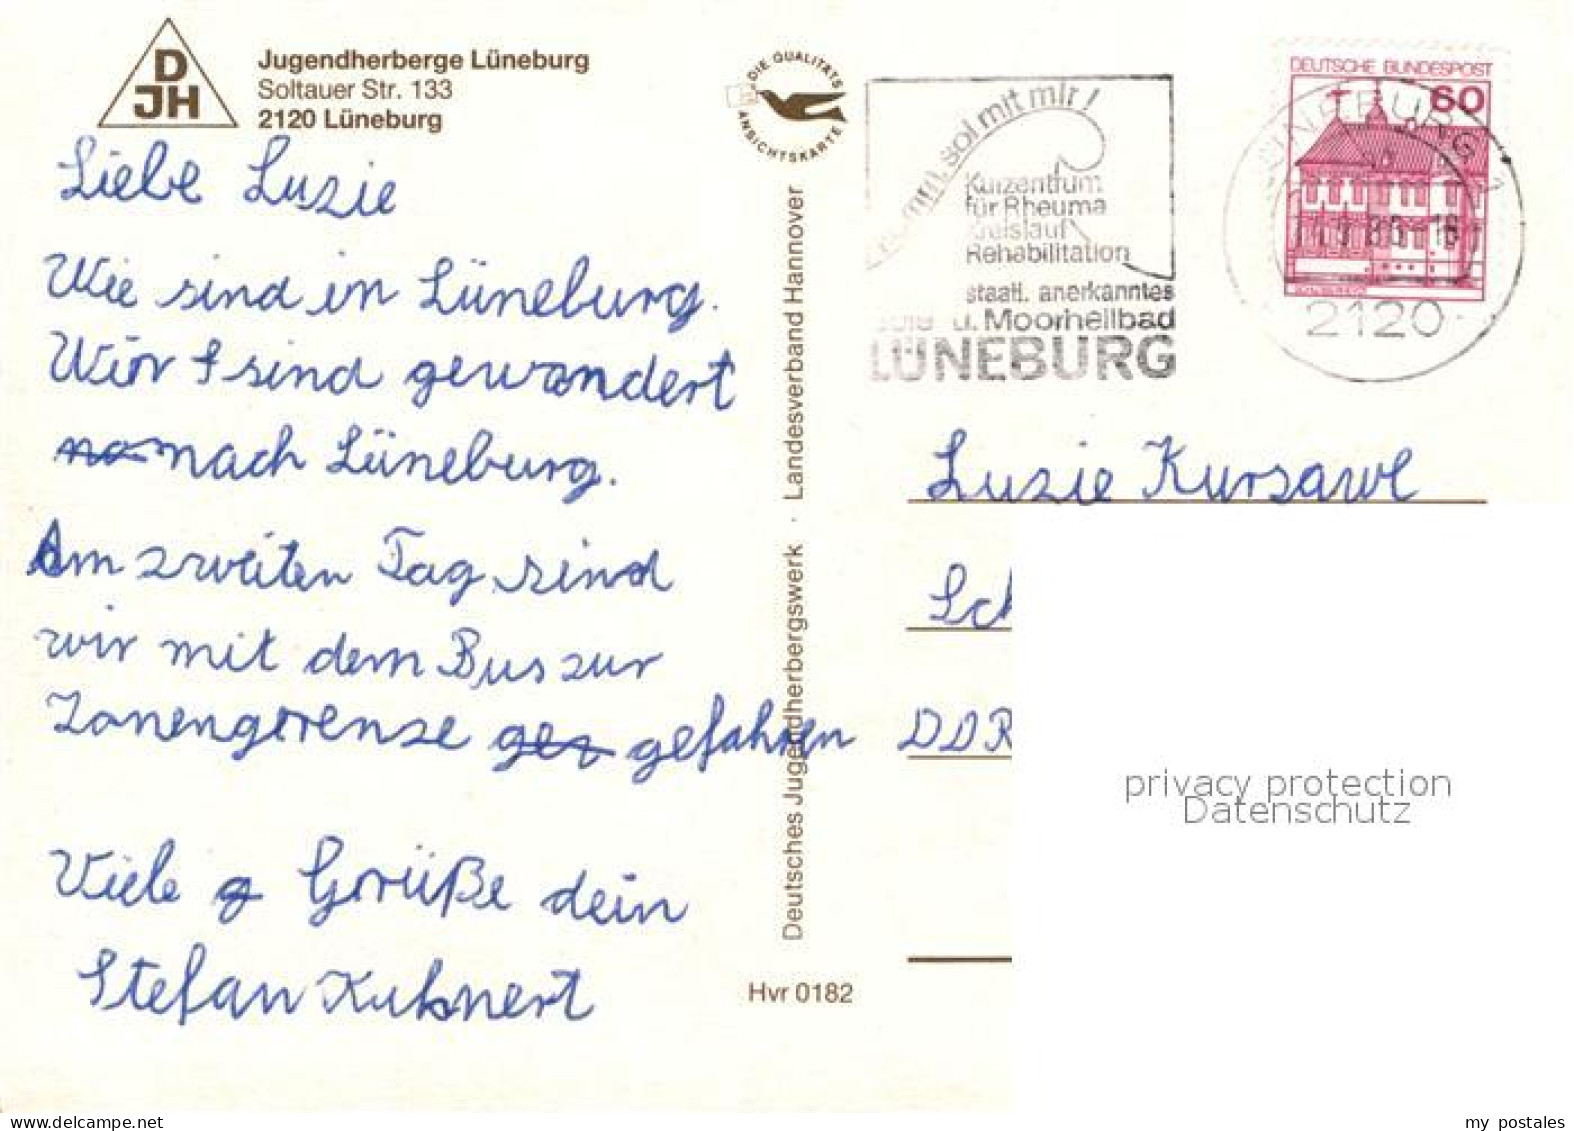 D
JH
Jugendherberge Lüneburg
Soltauer Str. 133
2120 Lüneburg
Liebe Luzie
Wie sind in Lüneburg.
Wir sind gewandert
na nach Lüneburg.
Am zweiten Tag sind
wir mit dem Bus zur
Zonengrenze ger gefahren
Viele g Grüße dein
Stefan Kuhnert
DIE QUALITÄTS
ANSICHTSKARTE
Deutsches Jugendherbergswerk · Landesverband Hannover
Hvr 0182
sol mit mir!
Kurzentrum
für Rheuma
Kreislauf
Rehabilitation
staatl. anerkanntes
u. Moorheilbad
LÜNEBURG
DEUTSCHE BUNDESPOST
60
LÜNEBURG 1
2120
Luzie Kursawe
Sch
DDR
privacy protection
Datenschutz
my postales